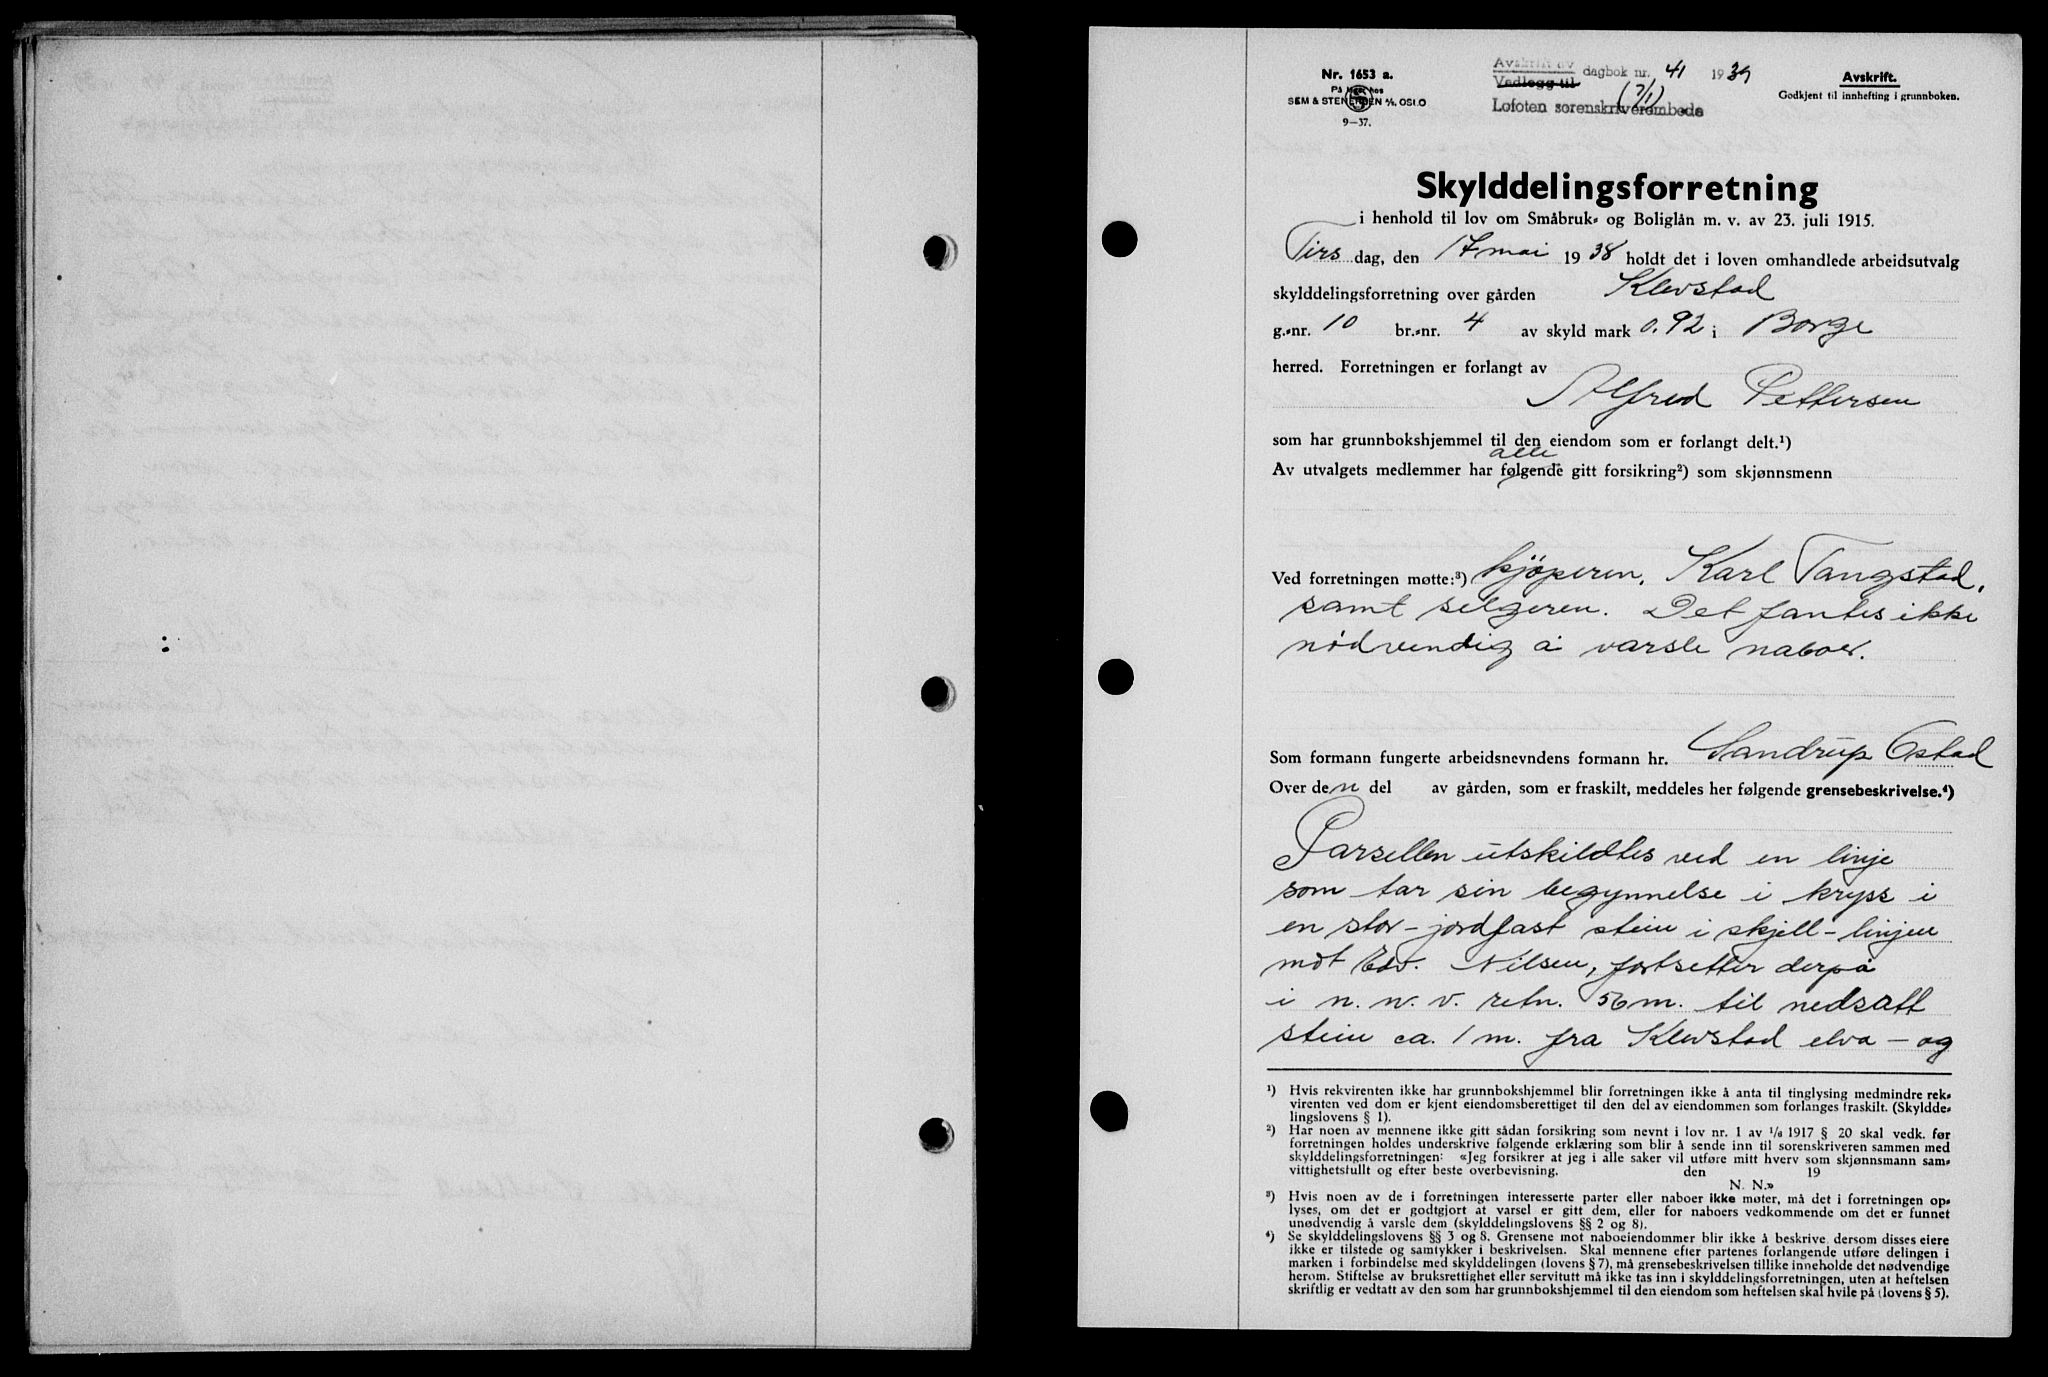 Nr. 1653 a.
På lager hos
SEM & STENERSEN A/S, OSLO
9—37.
Avskrift av
Vedlegg til dagbok nr. 41 1939
(7/1)
Lofoten sorenskriverembede
Avskrift.
Godkjent til innhefting i grunnboken.
Skylddelingsforretning
i henhold til lov om Småbruk- og Boliglån m. v. av 23. juli 1915.
Tirs dag, den 17 mai 1938 holdt det i loven omhandlede arbeidsutvalg
skylddelingsforretning over gården Klevstad
g.-nr. 10 br.-nr. 4 av skyld mark 0.92 i Borge
herred. Forretningen er forlangt av
Alfred Pettersen
som har grunnbokshjemmel til den eiendom som er forlangt delt.¹)
alle
Av utvalgets medlemmer har følgende gitt forsikring²) som skjønnsmenn
Ved forretningen møtte:³) kjøperen, Karl Tangstad,
samt selgeren. Det fantes ikke
nødvendig å varsle naboer.
Som formann fungerte arbeidsnevndens formann hr. Sandrup Ostad
Over den del av gården, som er fraskilt, meddeles her følgende grensebeskrivelse.⁴)
Parsellen utskildtes ved en linje
som tar sin begynnelse i kryss i
en stor - jordfast stein i skjell - linjen
mot Edv. Nilsen, fortsetter derpå
i n. n. v. retn. 56 m. til nedsatt
stein ca. 1 m. fra Klevstad elva - og
¹) Hvis rekvirenten ikke har grunnbokshjemmel blir forretningen ikke å anta til tinglysing medmindre rek-
virenten ved dom er kjent eiendomsberettiget til den del av eiendommen som forlanges fraskilt. (Skyldde-
lingslovens § 1).
²) Har noen av mennene ikke gitt sådan forsikring som nevnt i lov nr. 1 av 1/6 1917 § 20 skal vedk. før
forretningen holdes underskrive følgende erklæring som blir å sende inn til sorenskriveren sammen med
skylddelingsforretningen: «Jeg forsikrer at jeg i alle saker vil utføre mitt hverv som skjønnsmann sam-
vittighetsfullt og efter beste overbevisning. den 19
N. N.»
³) Hvis noen av de i forretningen interesserte parter eller naboer ikke møter, må det i forretningen op-
lyses, om det er godtgjort at varsel er gitt dem, eller for naboers vedkommende om det er funnet
unødvendig å varsle dem (skylddelingslovens §§ 2 og 8).
⁴) Se skylddelingslovens §§ 3 og 8. Grensene mot naboeiendommer blir ikke å beskrive, dersom disses eiere
ikke er tilstede og samtykker i beskrivelsen. Skal mennene efter partenes forlangende utføre delingen i
marken i forbindelse med skylddelingen (lovens § 7), må grensebeskrivelsen tillike inneholde det nødvendige
herom. Stiftelse av bruksrettighet eller servitutt må ikke tas inn i skylddelingsforretningen, uten at heftelsen
skriftlig er vedtatt av den som har grunnbokshjemmel til den eiendom som heftelsen skal hvile på (lovens § 5).